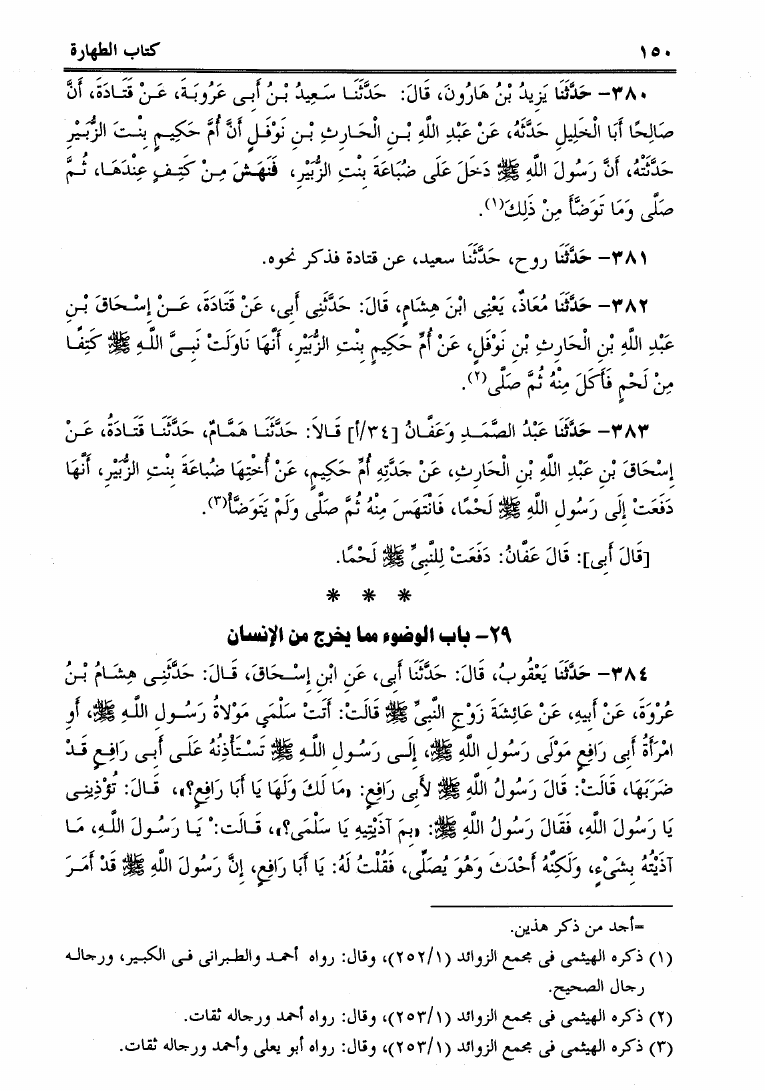 ١٥٠ كتاب الطهارة
٣٨٠- حَدَّثَنَا يَزِيدُ بْنُ هَارُونَ، قَالَ: حَدَّثَنَا سَعِيدُ بْنُ أَبِى عَرُوبَةَ، عَنْ قَتَادَةَ، أَنَّ
صَالِحًا أَبَا الْخَلِيلِ حَدَّثَهُ، عَنْ عَبْدِ اللَّهِ بْنِ الْحَارِثِ بْنِ نَوْفَلٍ أَنَّ أُمَّ حَكِيمٍ بِنْتَ الزُّبَيْرِ
حَدَّثَتْهُ، أَنَّ رَسُولَ اللَّهِ ﷺ دَخَلَ عَلَى ضُبَاعَةَ بِنْتِ الزُّبَيْرِ، فَنَهَشَ مِنْ كَتِفٍ عِنْدَهَا، ثُمَّ
صَلَّى وَمَا تَوَضَّأَ مِنْ ذَلِكَ(١).
٣٨١- حَدَّثَنَا روح، حَدَّثَنَا سعيد، عن قتادة فذكر نحوه.
٣٨٢- حَدَّثَنَا مُعَاذٌ، يَعْنِى ابْنَ هِشَامٍ، قَالَ: حَدَّثَنِى أَبِى، عَنْ قَتَادَةَ، عَنْ إِسْحَاقَ بْنِ
عَبْدِ اللَّهِ بْنِ الْحَارِثِ بْنِ نَوْفَلٍ، عَنْ أُمِّ حَكِيمٍ بِنْتِ الزُّبَيْرِ، أَنَّهَا نَاوَلَتْ نَبِىَّ اللَّهِ ﷺ كَتِفًا
مِنْ لَحْمٍ فَأَكَلَ مِنْهُ ثُمَّ صَلَّى(٢).
٣٨٣- حَدَّثَنَا عَبْدُ الصَّمَدِ وَعَفَّانُ [٣٤/أ] قَالاَ: حَدَّثَنَا هَمَّامٌ، حَدَّثَنَا قَتَادَةُ، عَنْ
إِسْحَاقَ بْنِ عَبْدِ اللَّهِ بْنِ الْحَارِثِ، عَنْ جَدَّتِهِ أُمِّ حَكِيمٍ، عَنْ أُخْتِهَا ضُبَاعَةَ بِنْتِ الزُّبَيْرِ، أَنَّهَا
دَفَعَتْ إِلَى رَسُولِ اللَّهِ ﷺ لَحْمًا، فَانْتَهَسَ مِنْهُ ثُمَّ صَلَّى وَلَمْ يَتَوَضَّأْ(٣).
[قَالَ أَبِى]: قَالَ عَفَّانُ: دَفَعَتْ لِلنَّبِىِّ ﷺ لَحْمًا.
* * *
٢٩- باب الوضوء مما يخرج من الإنسان
٣٨٤- حَدَّثَنَا يَعْقُوبُ، قَالَ: حَدَّثَنَا أَبِى، عَنِ ابْنِ إِسْحَاقَ، قَالَ: حَدَّثَنِى هِشَامُ بْنُ
عُرْوَةَ، عَنْ أَبِيهِ، عَنْ عَائِشَةَ زَوْجِ النَّبِىِّ ﷺ قَالَتْ: أَتَتْ سَلْمَى مَوْلاَةُ رَسُولِ اللَّهِ ﷺ، أَوِ
امْرَأَةُ أَبِى رَافِعٍ مَوْلَى رَسُولِ اللَّهِ ﷺ، إِلَى رَسُولِ اللَّهِ ﷺ تَسْتَأْذِنُهُ عَلَى أَبِى رَافِعٍ قَدْ
ضَرَبَهَا، قَالَتْ: قَالَ رَسُولُ اللَّهِ ﷺ لأَبِى رَافِعٍ: «مَا لَكَ وَلَهَا يَا أَبَا رَافِعٍ؟»، قَالَ: تُؤْذِينِى
يَا رَسُولَ اللَّهِ، فَقَالَ رَسُولُ اللَّهِ ﷺ: «بِمَ آذَيْتِيهِ يَا سَلْمَى؟»، قَالَت: يَا رَسُولَ اللَّهِ، مَا
آذَيْتُهُ بِشَىْءٍ، وَلَكِنَّهُ أَحْدَثَ وَهُوَ يُصَلِّى، فَقُلْتُ لَهُ: يَا أَبَا رَافِعٍ، إِنَّ رَسُولَ اللَّهِ ﷺ قَدْ أَمَرَ
=أجد من ذكر هذين.
(١) ذكره الهيثمى فى مجمع الزوائد (٢٥٢/١)، وقال: رواه أحمد والطبرانى فى الكبير، ورجاله
رجال الصحيح.
(٢) ذكره الهيثمى فى مجمع الزوائد (٢٥٣/١)، وقال: رواه أحمد ورجاله ثقات.
(٣) ذكره الهيثمى فى مجمع الزوائد (٢٥٣/١)، وقال: رواه أبو يعلى وأحمد ورجاله ثقات.